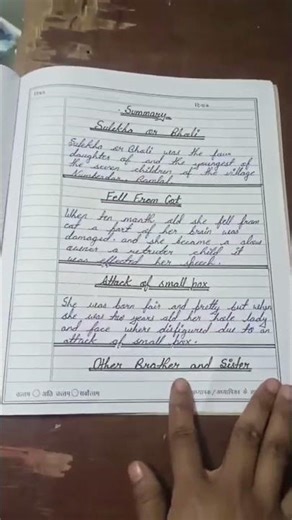 दिनांक
Summary
Sulekha or Bholi
Sulekha or Bholi was the four
daughter of and the youngest of
the seven children of the village
Numberdar Ramlal
Fell From Cot
When ten month old she fell from
cot a part of her brain was
damaged and she became a slow
child it
was effected her speech.
Attack of small box
She was born fair and pretty but when
she was two years old her hole body
and face where disfigured due to an
attack of small box.
Other Brother and Sister